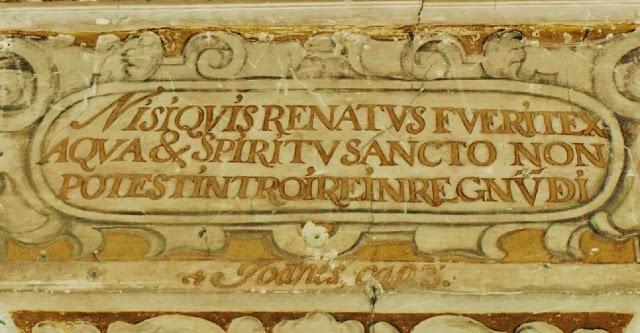 NiSiQViS RENATVS FVERiTEX
AQVA & SPiRiTVSANCTO NON
POTESTiNTROiREiNREGNṼ Di
Joanis cap 3.